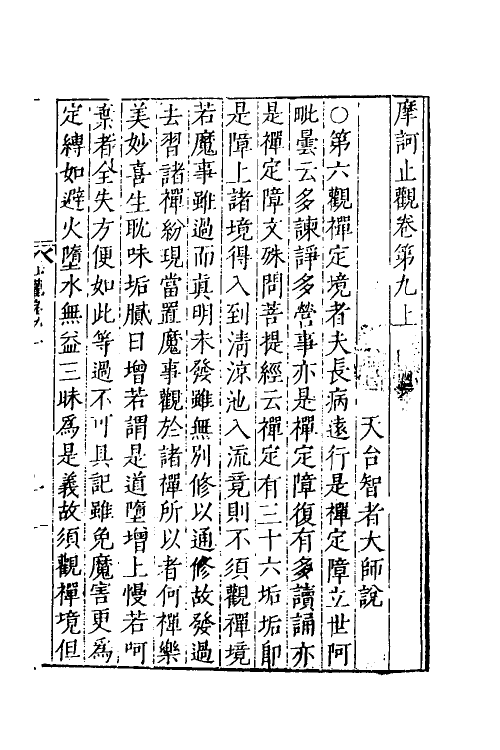 摩訶止觀卷第九上
天台智者大師說
○第六觀禪定境者夫長病遠行是禪定障立世阿
毗曇云多諫諍多營事亦是禪定障復有多讀誦亦
是禪定障文殊問菩提經云禪定有三十六垢垢卽
是障上諸境得入到淸涼池入流竟則不須觀禪境
若魔事雖過而眞明未發雖無別修以通修故發過
去習諸禪紛現當置魔事觀於諸禪所以者何禪樂
美妙喜生耽味垢膩日增若謂是道墮增上慢若呵
棄者全失方便如此等過不可具記雖免魔害更爲
定縛如避火墮水無益三昧爲是義故須觀禪境但